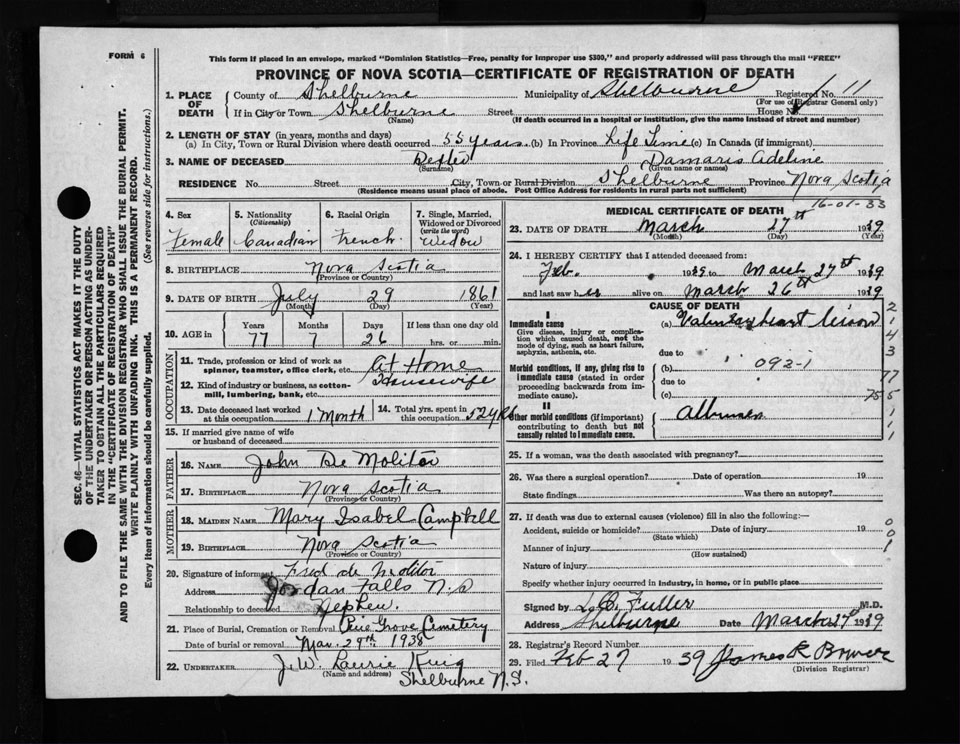 FORM 6
This form if placed in an envelope, marked "Dominion Statistics—Free, penalty for improper use $300," and properly addressed will pass through the mail "FREE"
PROVINCE OF NOVA SCOTIA—CERTIFICATE OF REGISTRATION OF DEATH
1. PLACE OF DEATH County of Shelburne Municipality of Shelbourne Registered No. 11
(For use of Registrar General only)
If in City or Town Shelburne Street House No.
(Name) (If death occurred in a hospital or institution, give the name instead of street and number)
2. LENGTH OF STAY (in years, months and days)
(a) In City, Town or Rural Division where death occurred 55 years (b) In Province Life Time (c) In Canada (if immigrant)
3. NAME OF DECEASED Damaris Adeline
(Surname) (Given name or names)
RESIDENCE No. Street City, Town or Rural Division Shelburne Province Nova Scotia
(Residence means usual place of abode. Post Office Address for residents in rural parts not sufficient)
SEC. 46—VITAL STATISTICS ACT MAKES IT THE DUTY
OF THE UNDERTAKER OR PERSON ACTING AS UNDER-
TAKER TO OBTAIN ALL THE PARTICULARS REQUIRED
IN THE "CERTIFICATE OF REGISTRATION OF DEATH"
AND TO FILE THE SAME WITH THE DIVISION REGISTRAR WHO SHALL ISSUE THE BURIAL PERMIT.
WRITE PLAINLY WITH UNFADING INK. THIS IS A PERMANENT RECORD.
Every item of information should be carefully supplied. (See reverse side for instructions.)
4. Sex Female
5. Nationality (Citizenship) Canadian
6. Racial Origin French
7. Single, Married, Widowed or Divorced (write the word) Widow
8. BIRTHPLACE Nova Scotia
(Province or Country)
9. DATE OF BIRTH July 29 1861
(Month) (Day) (Year)
10. AGE in Years Months Days If less than one day old
77 7 26 hrs. or min.
OCCUPATION
11. Trade, profession or kind of work as spinner, teamster, office clerk, etc. At Home
12. Kind of industry or business, as cotton-mill, lumbering, bank, etc. Housewife
13. Date deceased last worked at this occupation 1 Month
14. Total yrs. spent in this occupation 52 yrs
15. If married give name of wife or husband of deceased
FATHER
16. NAME John De Molitor
17. BIRTHPLACE Nova Scotia
(Province or Country)
MOTHER
18. MAIDEN NAME Mary Isabel Campbell
19. BIRTHPLACE Nova Scotia
(Province or Country)
20. Signature of informant Fred de Molitor
Address Jordan Falls N.S
Relationship to deceased Nephew.
21. Place of Burial, Cremation or Removal Pine Grove Cemetery
Date of burial or removal Mar. 29th 1938
22. UNDERTAKER J. W. Laurie King
(Name and address) Shelburne N.S.
MEDICAL CERTIFICATE OF DEATH
16-01-33
23. DATE OF DEATH March 27th 1939
(Month) (Day) (Year)
24. I HEREBY CERTIFY that I attended deceased from:
Feb. 1939 to March 27th 1939
and last saw her alive on March 26th 1939
CAUSE OF DEATH
I
Immediate cause
Give disease, injury or complication which caused death, not the mode of dying, such as heart failure, asphyxia, asthenia, etc.
(a) heart
due to
Morbid conditions, if any, giving rise to immediate cause (stated in order proceeding backwards from immediate cause).
(b) 092-1
due to
(c)
II
Other morbid conditions (if important) contributing to death but not causally related to immediate cause.
2
1
4
3
77
75
1
1
1
25. If a woman, was the death associated with pregnancy?
26. Was there a surgical operation? Date of operation 19
State findings Was there an autopsy?
27. If death was due to external causes (violence) fill in also the following:—
Accident, suicide or homicide? Date of injury 19
(State which)
Manner of injury
(How sustained)
Nature of injury
0
0
1
Specify whether injury occurred in industry, in home, or in public place
Signed by Fuller M.D.
Address Shelburne Date March 27 1939
28. Registrar's Record Number
29. Filed Feb 27 1939 James R Bower
(Division Registrar)